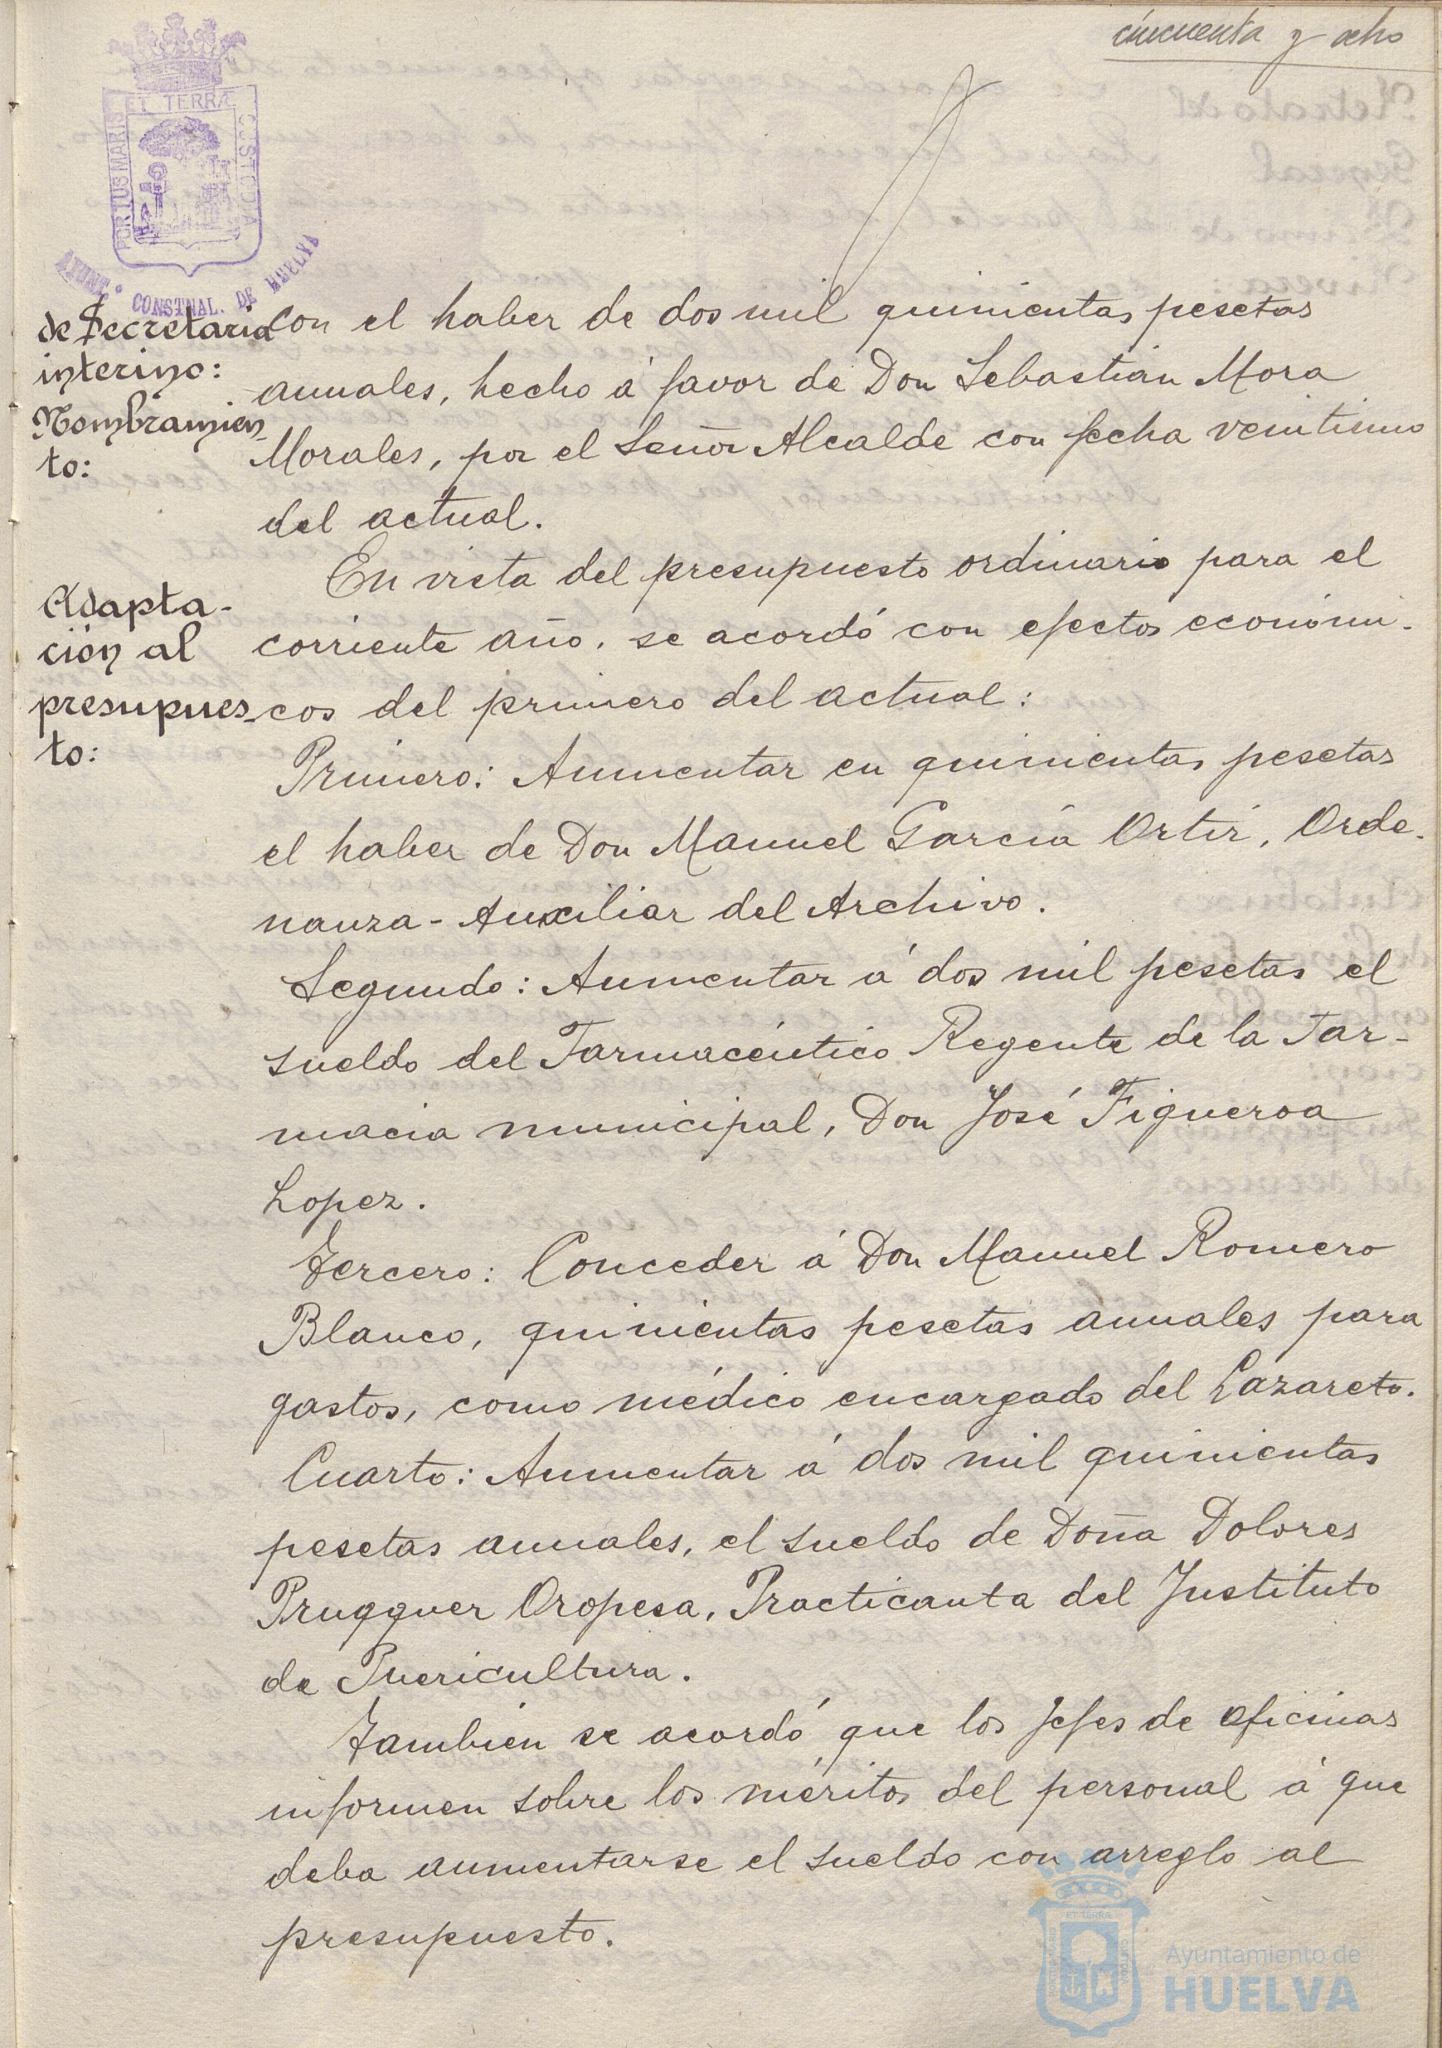 cincuenta y ocho
PORTUS MARIS ET TERRÆ CUSTODIA
AYUNT. CONSTNAL. DE HUELVA
de Secretaria
interino:
Nombramien
to:
con el haber de dos mil quinientas pesetas
anuales, hecho á favor de Don Sebastián Mora
Morales, por el Señor Alcalde con fecha veintiuno
del actual.
Adapta-
ción al
presupues-
to:
En vista del presupuesto ordinario para el
corriente año, se acordó con efectos económi-
cos del primero del actual:
Primero: Aumentar en quinientas pesetas
el haber de Don Manuel García Ortiz, Orde-
nanza-Auxiliar del Archivo.
Segundo: Aumentar á dos mil pesetas el
sueldo del Farmacéutico Regente de la Far-
macia municipal, Don José Figueroa
Lopez.
Tercero: Conceder á Don Manuel Romero
Blanco, quinientas pesetas anuales para
gastos, como médico encargado del Lazareto.
Cuarto: Aumentar á dos mil quinientas
pesetas anuales, el sueldo de Doña Dolores
Prugquer Oropesa, Practicanta del Instituto
de Puericultura.
También se acordó que los Jefes de oficinas
informen sobre los méritos del personal á que
deba aumentarse el sueldo con arreglo al
presupuesto.
Ayuntamiento de
HUELVA